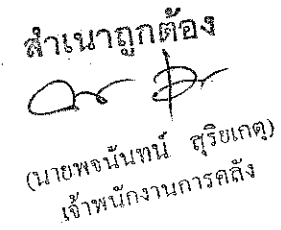 สำเนาถูกต้อง
(นายพจนันทน์ สุริยเกตุ)
เจ้าพนักงานการคลัง